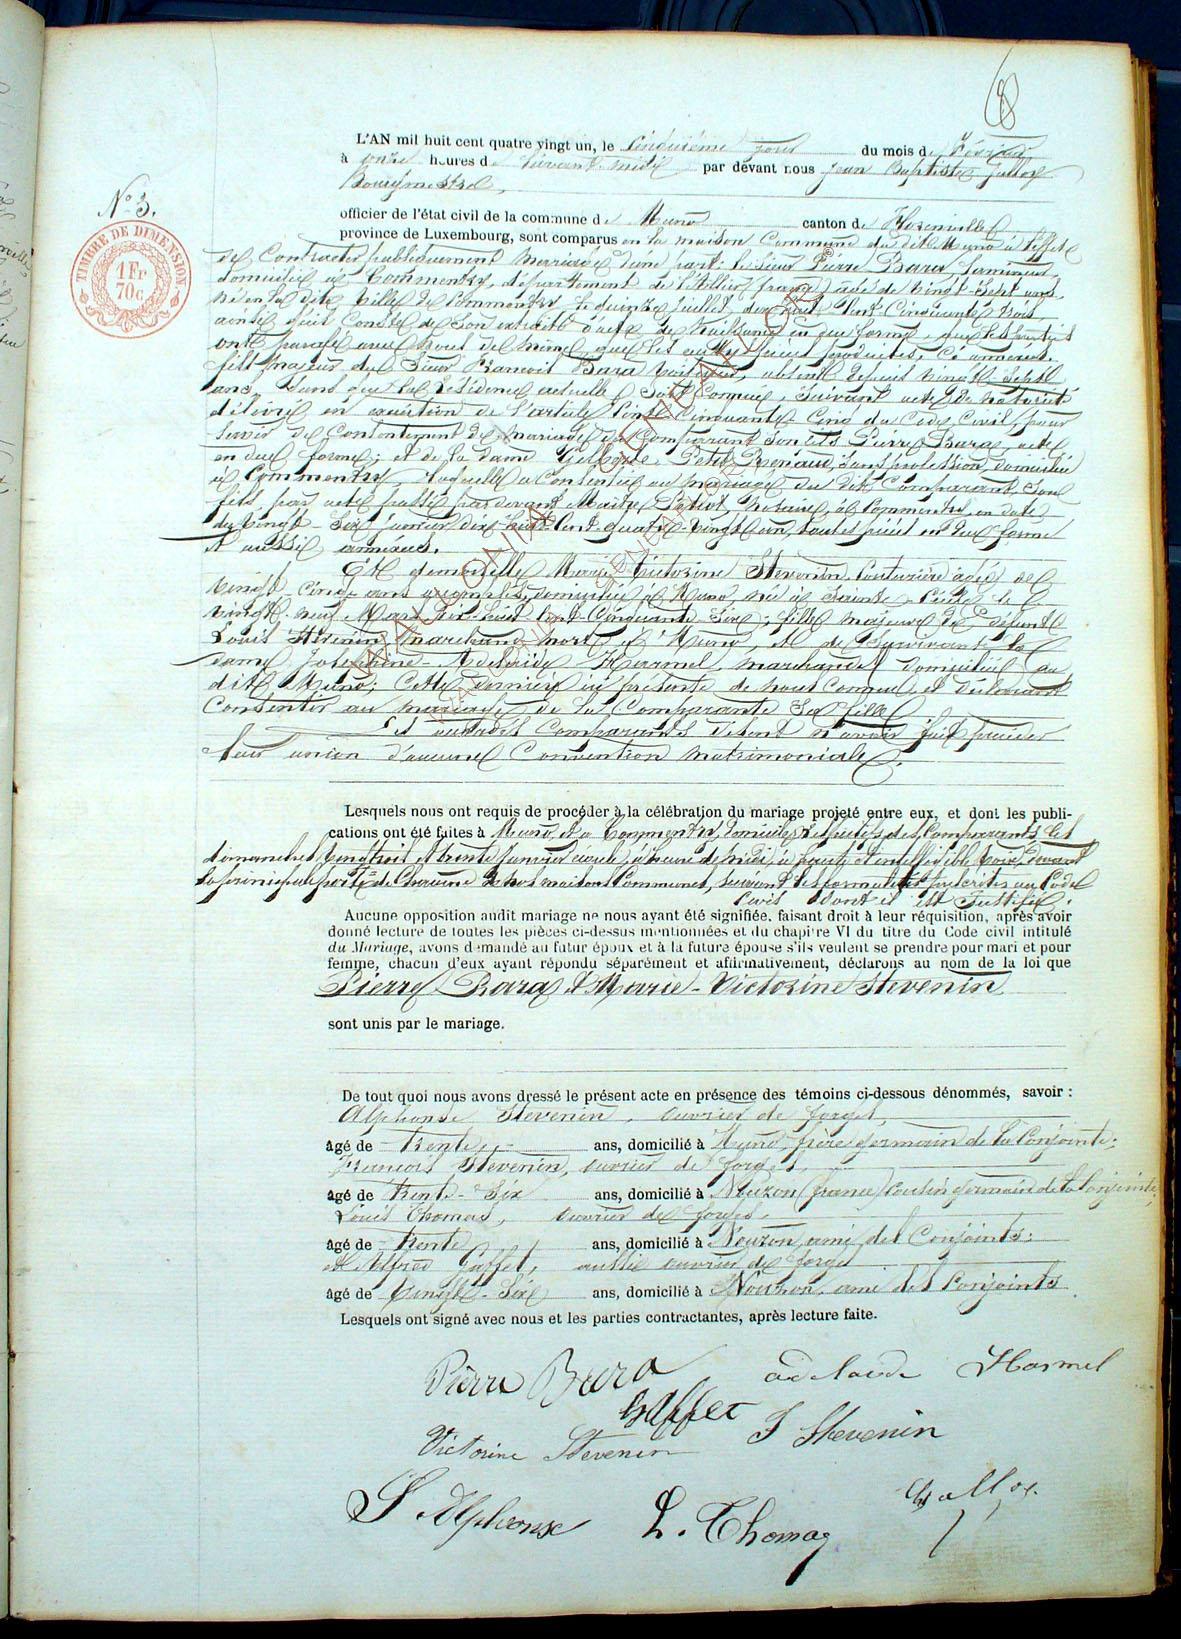 8
N° 3.
TIMBRE DE DIMENSION
1 Fr
70c
L'AN mil huit cent quatre vingt un, le cinquième jour du mois de Février
à onze heures d avant-midi par devant nous Jean Baptiste Galloy
Bourgmestre,
officier de l'état civil de la commune de Muno canton de Florenville
province de Luxembourg, sont comparus en la maison Commune du dit Muno à l'effet
de Contracter publiquement mariage d'une part le sieur Pierre Bara lamineur,
domicilié à Commentry, département de l'Allier (france) âgé de vingt-sept ans,
né en la dite ville de Commentry le quinze juillet dix huit Cent Cinquante trois,
ainsi qu'il Conste de son extrait d'acte de Naissance en due forme, que les parties
ont paraphé avec nous de même que les autres pièces produites, ci annexées.
fils majeur du Sieur François Bara voiturier, absent depuis vingt sept
ans, sans que sa résidence actuelle soit Connue, suivant acte de notoriété
délivré en exécution de l'article Cent Cinquante Cinq du Code Civil, pour
servir de Consentement de mariage du Comparant son fils Pierre Bara, acte
en due forme; et de la dame Gilberte Petit-Renaud, sans profession, domiciliée
à Commentry, laquelle a Consenti au mariage du dit Comparant, son
fils par acte passé par devant Maître notaire à Commentry en date
du vingt-six janvier dix huit Cent quatre-vingt un, toutes pièces en due forme
et aussi annexées.
Et demoiselle Marie Victorine Stevenin, Couturière âgée de
vingt-Cinq ans domiciliée à Muno née à Sainte-Cécile le
vingt-neuf Mars dix-huit Cent-Cinquante Six; fille majeure de défunt
Louis Stevenin marchand mort à Muno, et de Survivante la
dame Joséphine-Adelaide Harmel, marchande domiciliée au
dit Muno; Cette dernière ici présente de nous Connue et déclarant
Consentir au mariage de la Comparante Sa fille
Les susdits Comparants disent n'avoir fait précéder
leur union d'aucune Convention matrimoniale.
Lesquels nous ont requis de procéder à la célébration du mariage projeté entre eux, et dont les publi-
cations ont été faites à Muno et à Commentry, domiciles respectifs des Comparants les
dimanches vingt trois et trente Janvier écoulé, à heure de midi, à haute et intelligible voix, devant
la principale porte de Chacune de nos maisons Communes, suivant les formalités prescrites au Code
Civil dont il est Justifié.
Aucune opposition audit mariage ne nous ayant été signifiée, faisant droit à leur réquisition, après avoir
donné lecture de toutes les pièces ci-dessus mentionnées et du chapitre VI du titre du Code civil intitulé
du Mariage, avons demandé au futur époux et à la future épouse s'ils veulent se prendre pour mari et pour
femme, chacun d'eux ayant répondu séparément et affirmativement, déclarons au nom de la loi que
Pierre Bara et Marie-Victorine Stevenin
sont unis par le mariage.
De tout quoi nous avons dressé le présent acte en présence des témoins ci-dessous dénommés, savoir :
Alphonse Stevenin, ouvrier de forges,
âgé de trente, ans, domicilié à Muno, frère germain de la Conjointe;
François Stevenin, ouvrier de forges,
âgé de trente-Six ans, domicilié à Nouzon (france) Cousin germain de la Conjointe;
Louis Thomas, ouvrier de forges,
âgé de trente ans, domicilié à Nouzon, ami des Conjoints;
et Alfred Gaffet, aussi ouvrier de forge
âgé de vingt-Six ans, domicilié à Nouzon, ami des Conjoints.
Lesquels ont signé avec nous et les parties contractantes, après lecture faite.
Pierre Bara adelaide Harmel
Gaffet
Victorine Stevenin F Stevenin
S Alphonse L. Thomas Galloy